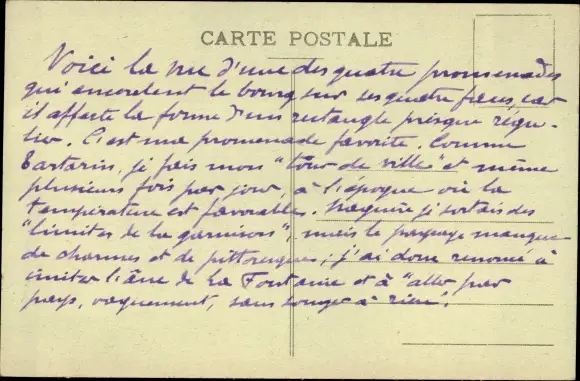 CARTE POSTALE
Voici la vue d'une des quatre promenades
qui encerclent le bourg sur ses quatre faces, car
il affecte la forme d'un rectangle presque régu-
lier. C'est ma promenade favorite. Comme
Tartarin, je fais mon "tour de ville" et même
plusieurs fois par jour, à l'époque où la
température est favorable. Naguère je sortais des
"limites de la garnison", mais le paysage manque
de charmes et de pittoresque; j'ai donc renoncé à
imiter l'âne de La Fontaine et à "aller par
pays, vaquement, sans songer à rien".